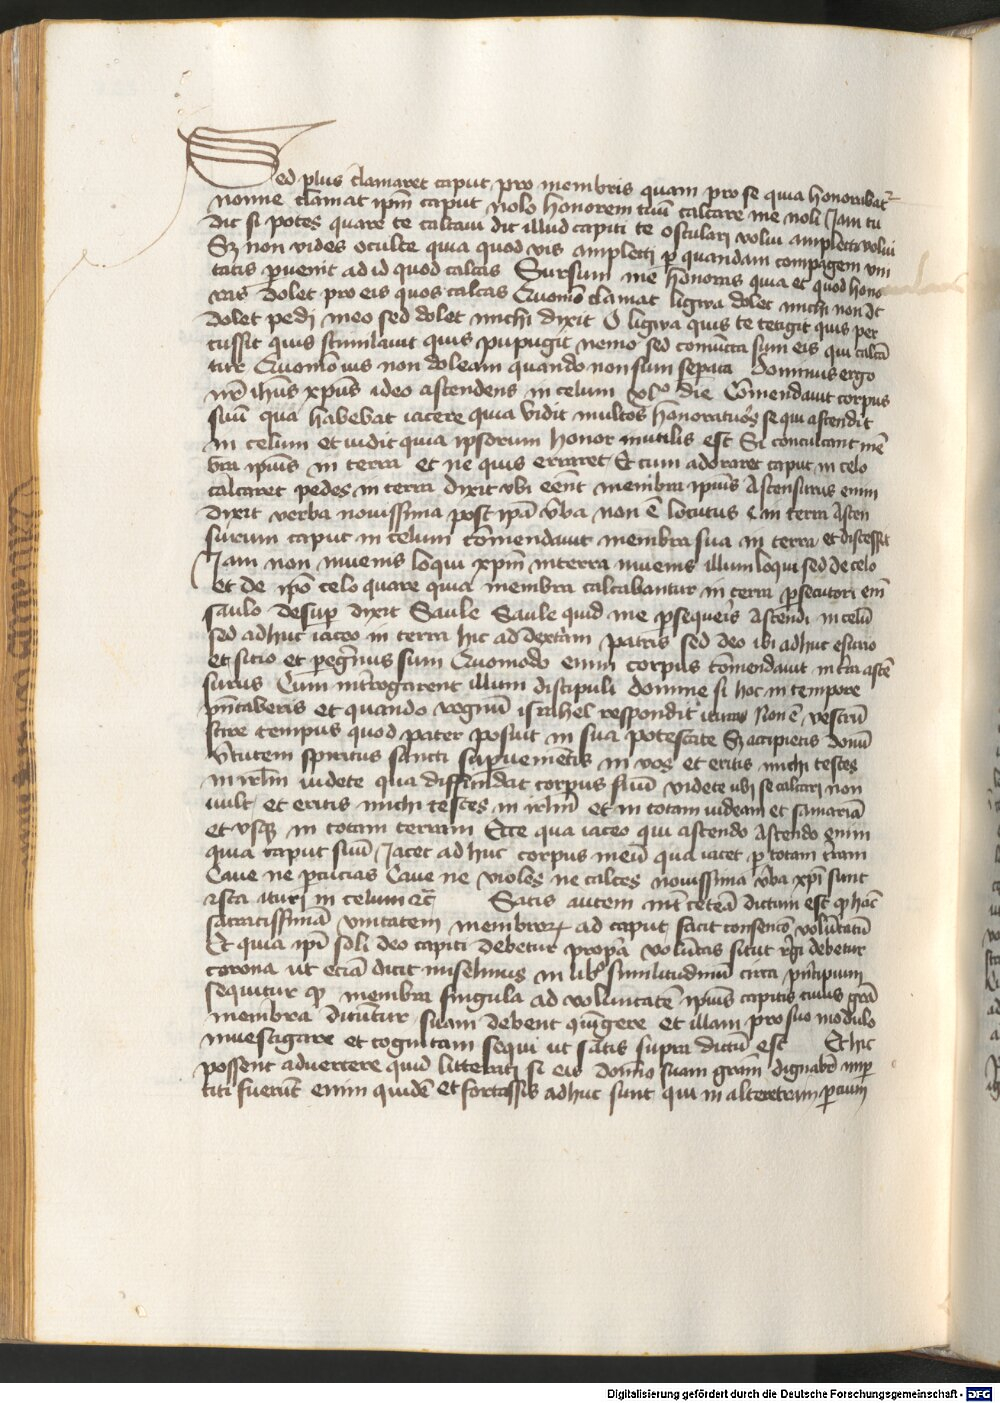 Sed plus clamaret caput pro membris quam pro se quia honorabat᷑
nonne clamat ipm̄ caput nolo honorem tuū calcare me noli Jam tu
dic si potes quare te calcaui dic illud capiti te osculari volui amplecti volui
Sꝫ non vides oculte quia quod vis amplecti ꝑ quandam compagem vni
tatis ꝑuenit ad id quod calcas Sursum me honoras quia et quod hono
ras dolet pro eis quos calcas Quomō clamat ligwa dolet michi non dt̄
dolet pedi meo sed dolet michi dixit O ligwa quis te tetigit quis per
cussit quis stimulauit quis pupugit nemo sed coniūcta sum eis qui calcā
tur Quomō vis non doleam quando non sum seperata Dominus ergo
nr̄ ihūs xpūs ideo ascendens in celum xlᵒ die Cōmendauit corpus
suū qua habebat iacere quia vidit multos honoratuōs se qui ascendit
in celum et vidit quia ipsorum honor inutilis est Si conculcant mē
bra ipius in terra et ne quis erraret Et cum adoraret caput in celo
calcaret pedes in terra dixit vbi eēnt membra ipius Ascensurus enim
dixit verba nouissima post ipā v̄ba non ē locutus in terra Ascen
surum caput in celum cōmendauit membra sua in terra et discessit
Jam non inuenis loqui xpm̄ in terra inuenis illum loqui sed de celo
et de ipō celo quare quia membra calcabantur in terra ꝑsecutori em̄
saulo desuꝑ dixit Saule Saule quid me ꝑsequeris Ascendi in celū
sed adhuc iaceo in terra hic ad dextram patris sed deo ibi adhuc esurio
et sitio et ꝑegrinus sum Quomodo enim corpus cōmendauit in t̄ra ascē
surus Cum int̄rogarent illum discipuli domine si hoc in tempore
pn̄taberis et quando regnū israhel respondit iturus Non ē vestrū
scire tempus quod pater posuit in sua potestate Sꝫ accipietis donū
v̄tutem spiritus sancti suꝑuenientis in vos et eritis michi testes
in irlm̄ videte qua diffundat corpus suū videte ubi se calcari non
vult et eritis michi testes in irlm̄ et in totam iudeam et samariā
et vsqꝫ in totam terram Ecce qua iaceo qui ascendo Ascendo enim
quia caput suū Jacet adhuc corpus meū qua iacet ꝑ totam t̄ram
Caue ne ꝑcucias Caue ne violes ne calces nouissima v̄ba xpi sunt
ista ituri in celum ⁊c̄ Satis autem int̄ cetera dictum est ꝙ hāc
sacratissimā vnitatem membroꝝ ad caput facit consensᵒ volūtatū
Et quia ipi soli deo capiti debetur propᵃ volūtas sicut rḡi debetur
corona ut eciā dicit anselmus in libᵒ similitudinū circa pn̄cipium
sequitur ꝙ membra singula ad voluntatē ipius capitis cuius grā
membra dicūtur suam debent qiūgere et illam pro suo modulo
inuestigare et cognitam sequi ut satis supra dictū est Et hic
possent aduertere quū litterati si eis domīo suam grām dignabr̄ imꝑ
titi fuerūt enim quidē et fortassis adhuc sunt qui in alteretram ꝑcium